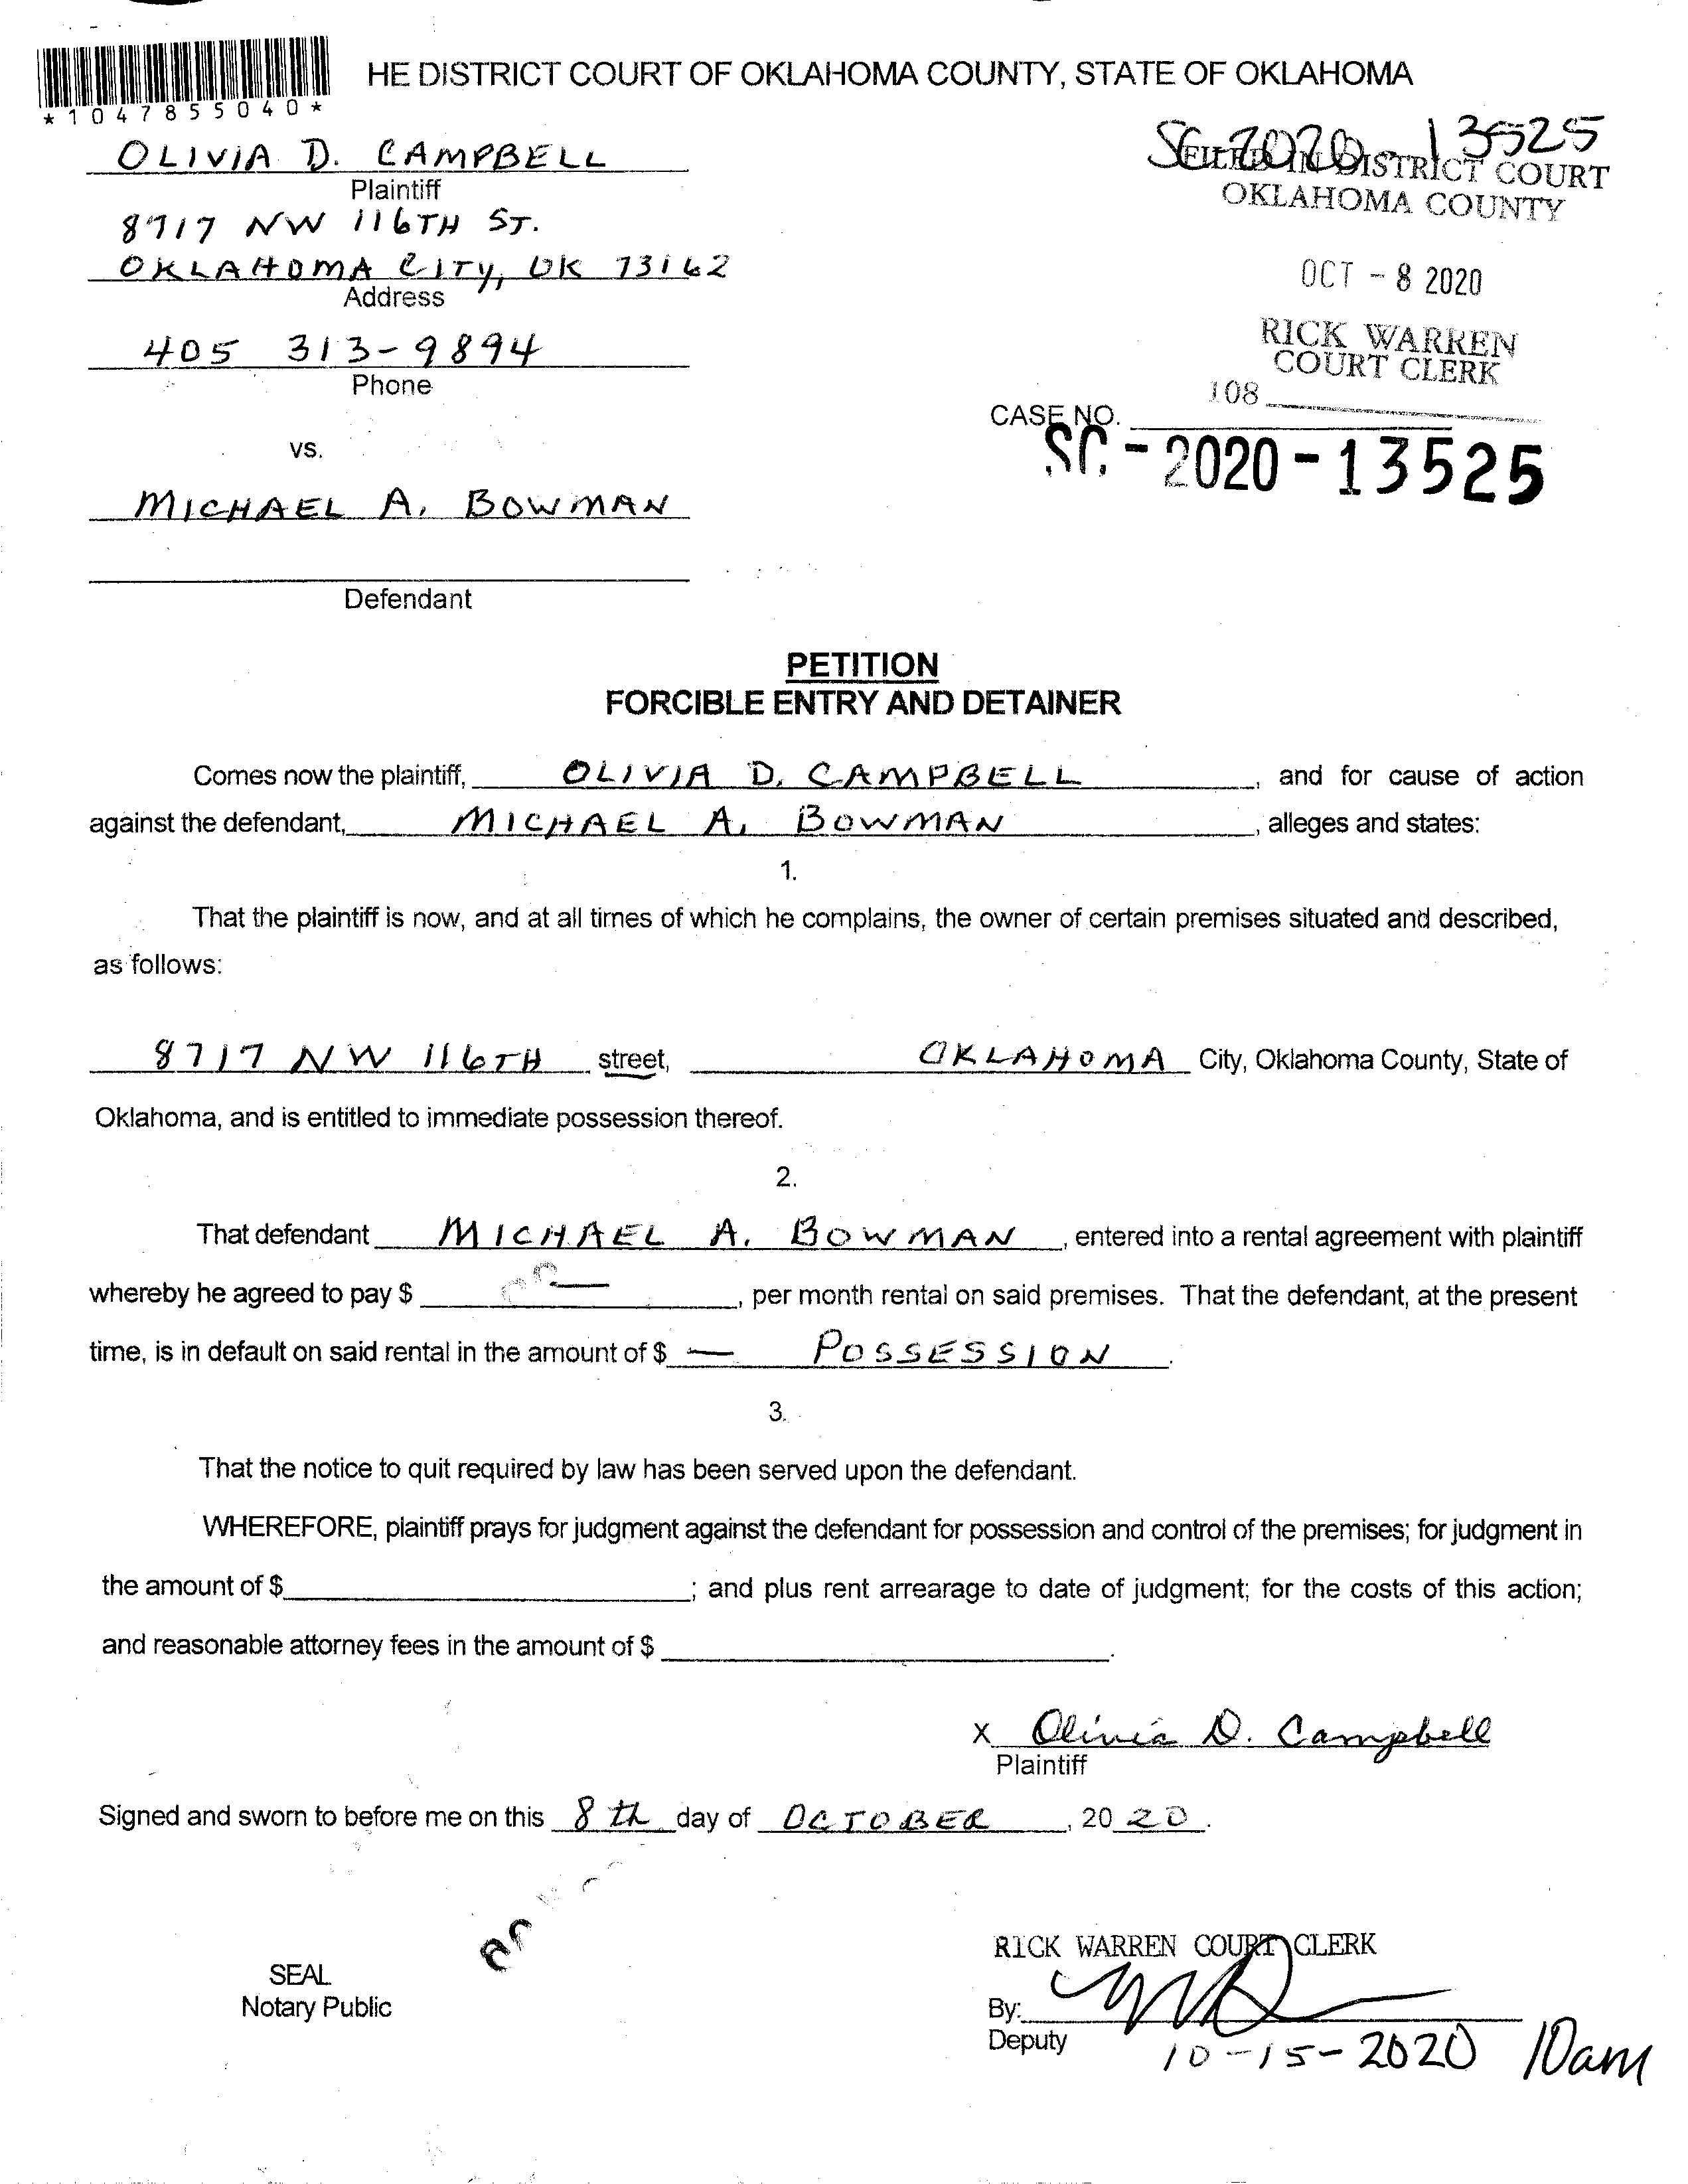 HE DISTRICT COURT OF OKLAHOMA COUNTY, STATE OF OKLAHOMA
*1047855040*
OLIVIA D. CAMPBELL
Plaintiff
8717 NW 116TH ST.
OKLAHOMA CITY, OK 73162
Address
405 313-9894
Phone
SC-2020-13525
FILED IN DISTRICT COURT
OKLAHOMA COUNTY
OCT - 8 2020
RICK WARREN
COURT CLERK
108
CASE NO.
SC-2020-13525
vs.
MICHAEL A. BOWMAN
Defendant
PETITION
FORCIBLE ENTRY AND DETAINER
Comes now the plaintiff, OLIVIA D. CAMPBELL, and for cause of action
against the defendant, MICHAEL A. BOWMAN, alleges and states:
1.
That the plaintiff is now, and at all times of which he complains, the owner of certain premises situated and described,
as follows:
8717 NW 116TH street, OKLAHOMA City, Oklahoma County, State of
Oklahoma, and is entitled to immediate possession thereof.
2.
That defendant MICHAEL A. BOWMAN, entered into a rental agreement with plaintiff
whereby he agreed to pay $ —, per month rental on said premises. That the defendant, at the present
time, is in default on said rental in the amount of $ — POSSESSION.
3.
That the notice to quit required by law has been served upon the defendant.
WHEREFORE, plaintiff prays for judgment against the defendant for possession and control of the premises; for judgment in
the amount of $ ; and plus rent arrearage to date of judgment; for the costs of this action;
and reasonable attorney fees in the amount of $ .
X Olivia D. Campbell
Plaintiff
Signed and sworn to before me on this 8th day of OCTOBER, 2020.
SEAL
Notary Public
RICK WARREN COURT CLERK
By:
Deputy
10-15-2020 10am